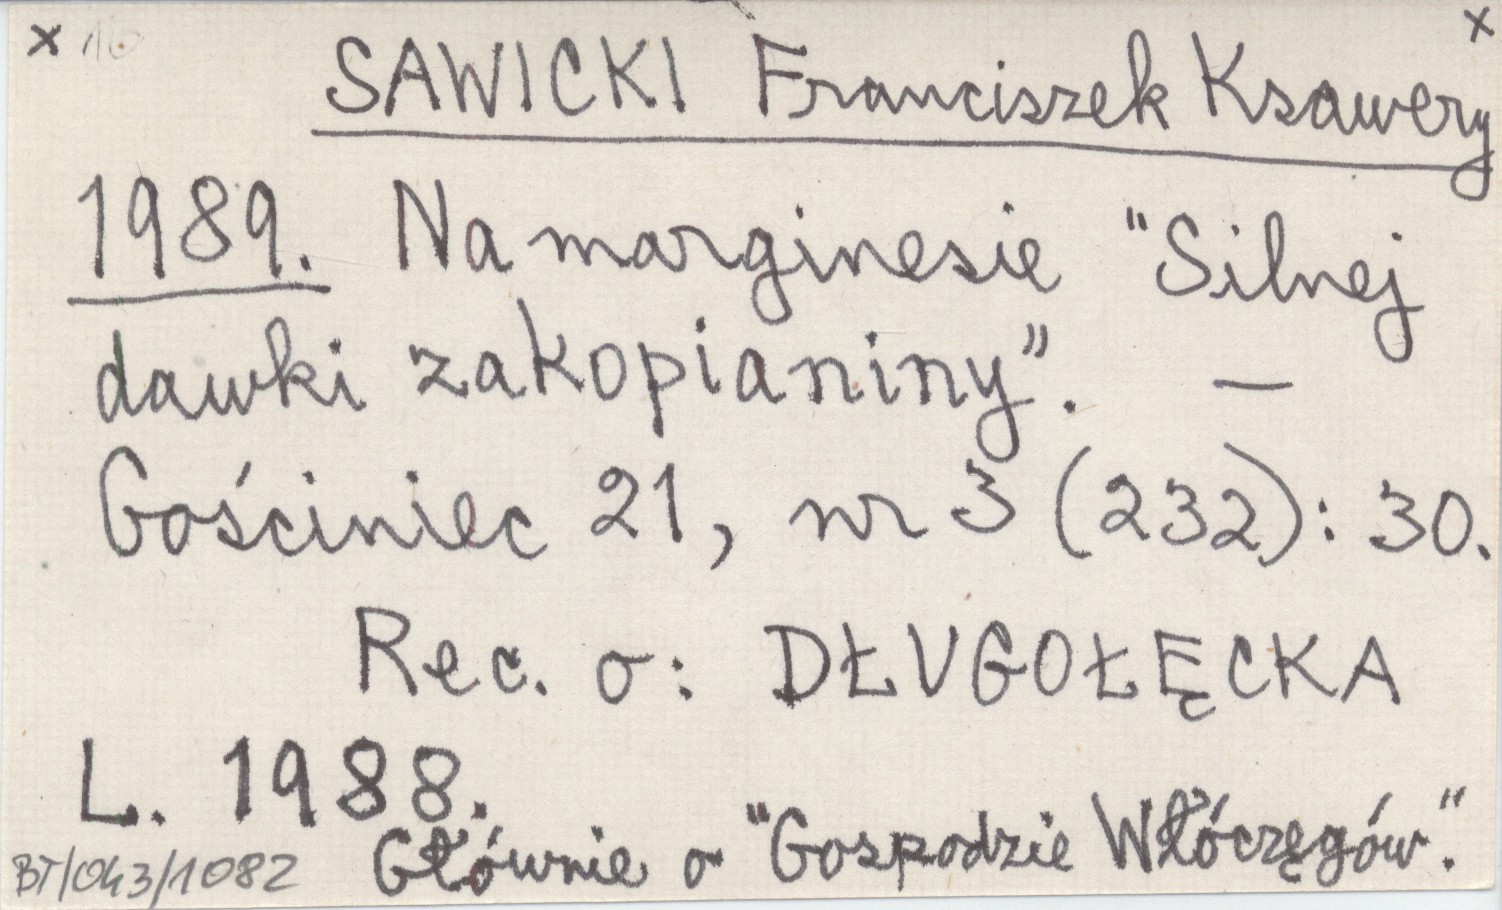 x 10 x
SAWICKI Franciszek Ksawery
1989. Na marginesie "Silnej
dawki zakopianiny". —
Gościniec 21, nr 3 (232): 30.
Rec. o: DŁUGOŁĘCKA
L. 1988.
Głównie o "Gospodzie Włóczęgów".
BT/043/1082